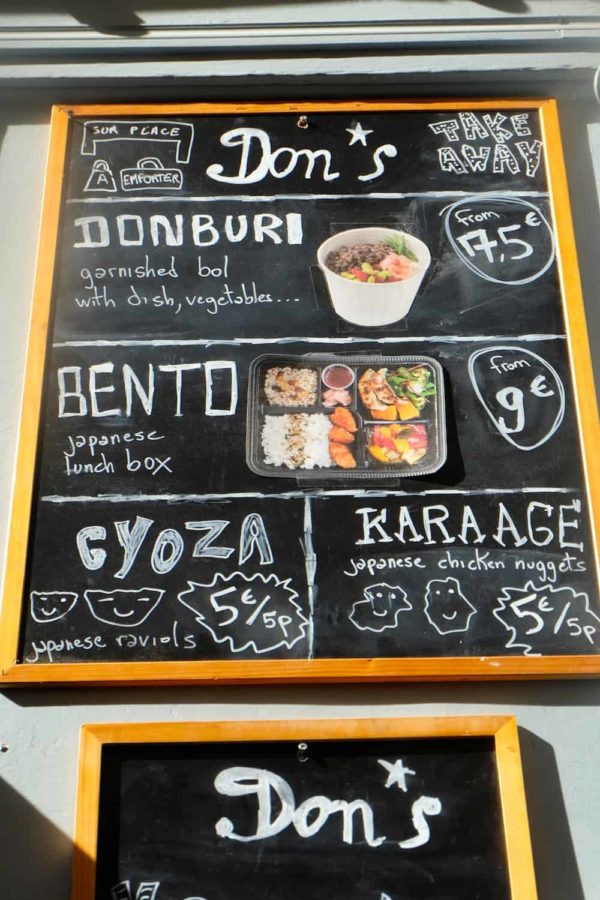 SUR PLACE
A EMPORTER
Don's
TAKE
AWAY
DONBURI
garnished bol
with dish, vegetables...
from
7,5€
BENTO
japanese
lunch box
from
9€
GYOZA
5€/5p
japanese raviols
KARAAGE
japanese chicken nuggets
5€/5p
Don's